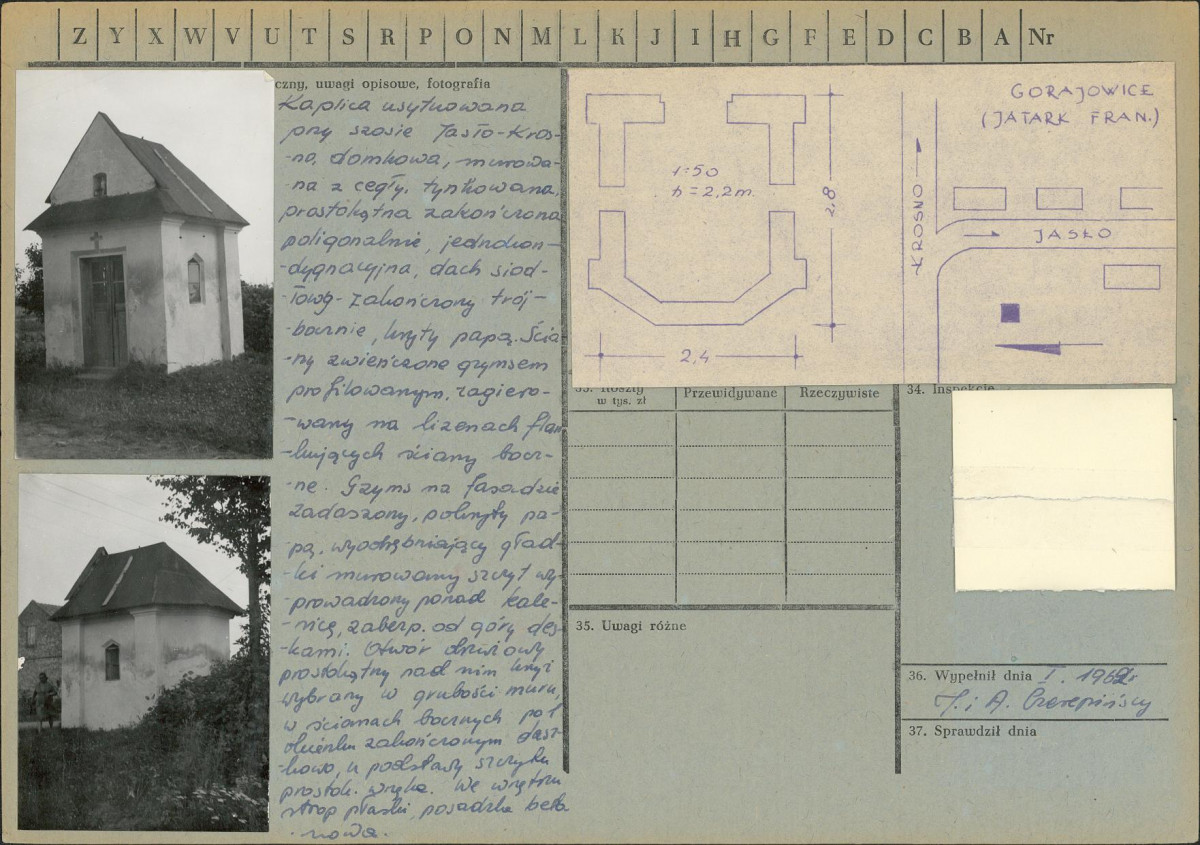 Z Y X W V U T S R P O N M L K J I H G F E D C B A Nr
czny, uwagi opisowe, fotografia
Kaplica usytuowana
przy szosie Jasło-Kros-
-no, domkowa, murowa-
-na z cegły, tynkowana,
prostokątna zakończona
poligonalnie, jednokon-
-dygnacyjna, dach siod-
-łowy zakończony trój-
-bocznie, kryty papą. Ścia-
-ny zwieńczone gzymsem
profilowanym, zagiero-
-wany na lizenach flan-
-kujących ściany bocz-
-ne. Gzyms na fasadzie
zadaszony, pokryty pa-
-pą, wyodrębniający gład-
-ki murowany szczyt wy-
-prowadzony ponad kale-
-nicę, zabezp. od góry des-
-kami. Otwór drzwiowy
prostokątny nad nim krzyż
wybrany w grubości muru,
w ścianach bocznych po 1
okienku zakończonym dasz-
-kowo, u podstawy szczytu
prostok. wnęka. We wnętrzu
strop płaski, posadzka beto-
-nowa.
1:50
h = 2,2 m.
2,8
2,4
GORAJOWICE
(JATARK FRAN.)
KROSNO
JASŁO
33. Koszty
w tys. zł
Przewidywane
Rzeczywiste
34. Inspekcje
35. Uwagi różne
36. Wypełnił dnia I. 1962r
J. i A. Czerepińscy
37. Sprawdził dnia